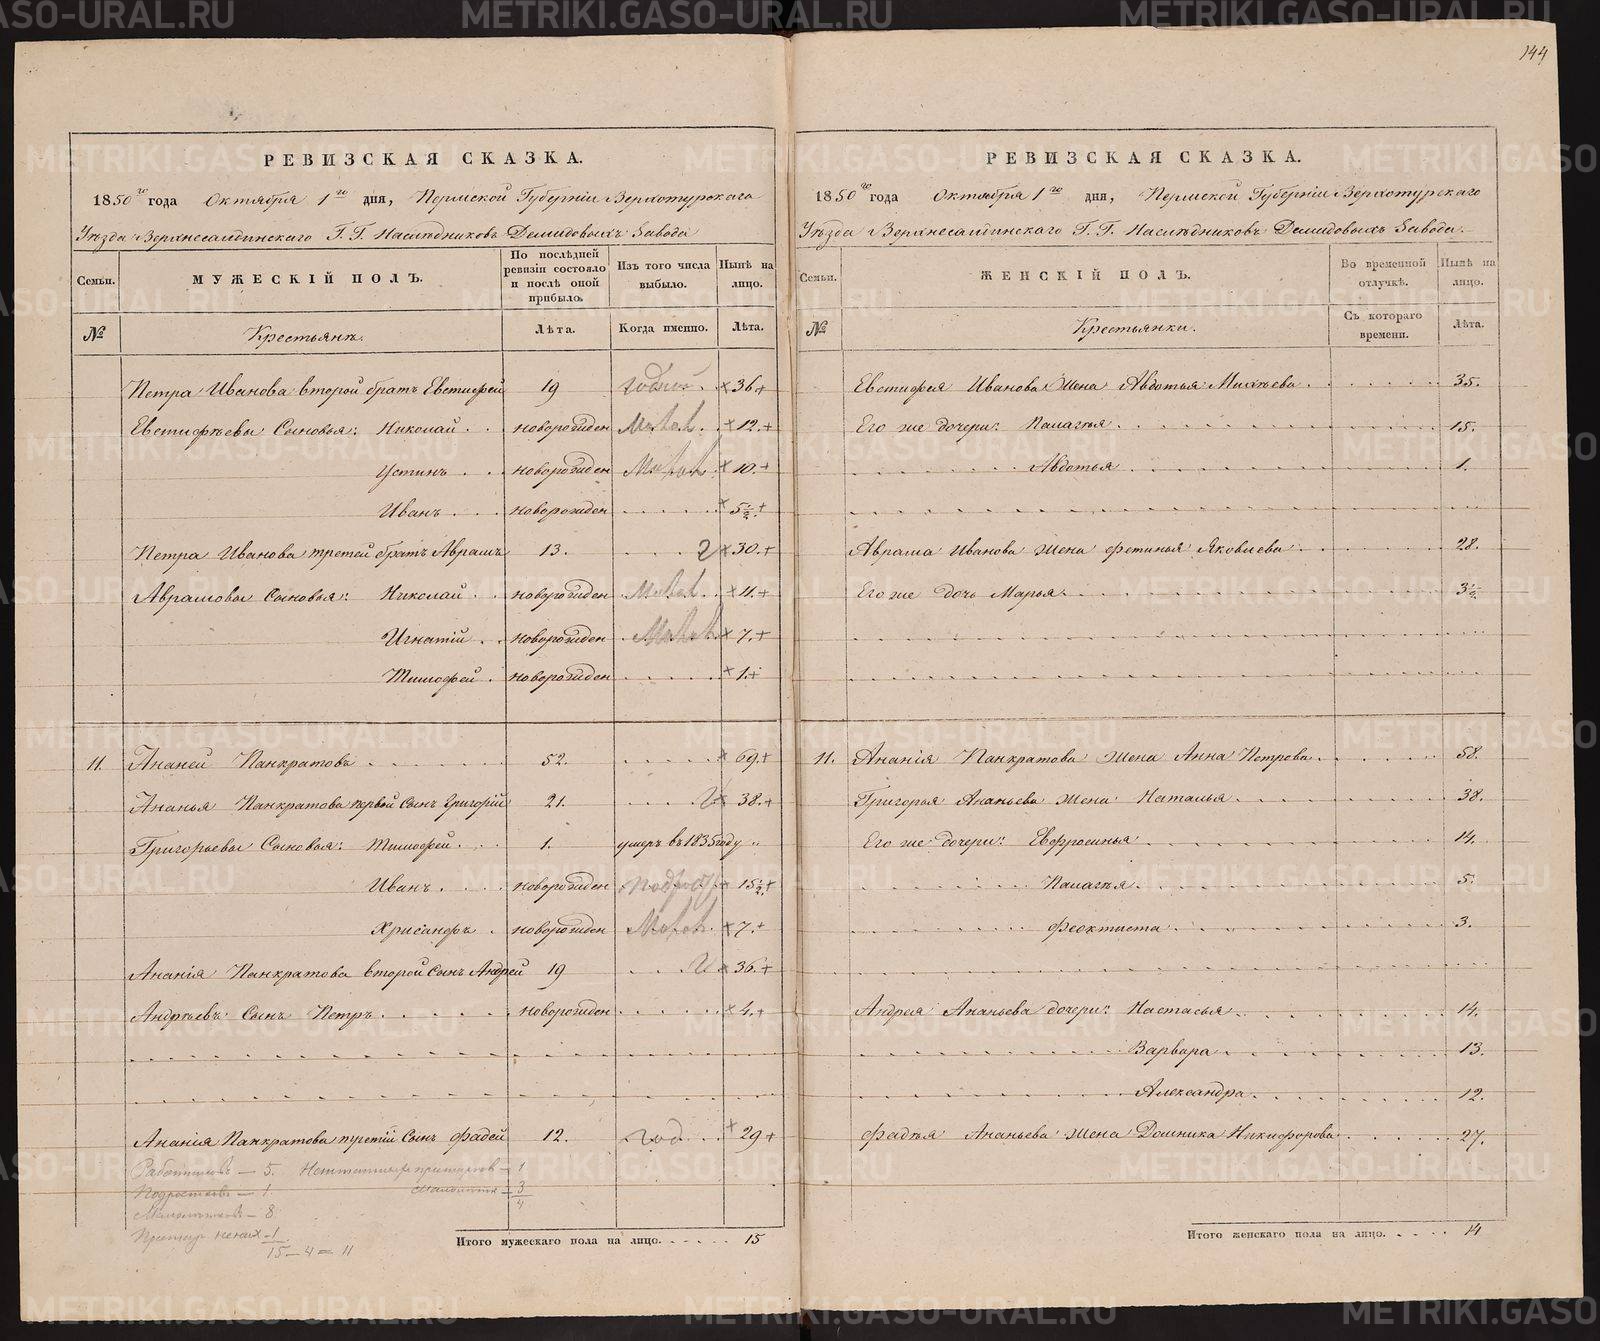 144
РЕВИЗСКАЯ СКАЗКА.
1850го года Октября 1го дня, Пермской Губерніи Верхотурскаго
Уѣзда Верхнесалдинскаго Г. Г. Наслѣдниковъ Демидовыхъ Завода
Семьи. МУЖЕСКІЙ ПОЛЪ. По послѣдней ревизіи состояло и послѣ оной прибыло. Изъ того числа выбыло. Нынѣ на лицо.
№ Крестьянъ. Лѣта. Когда именно. Лѣта.
Петра Иванова второй братъ Евстифей 19 годной 36
Евстифѣевы Сыновья: Николай новорожден Малол 12
Устинъ новорожден Малол 10
Иванъ новорожден 5 1/2
Петра Иванова третей братъ Аврамъ 13. г 30
Аврамовы Сыновья: Николай новорожден Малол 11
Игнатій новорожден Малол 7
Тимофей новорожден 1
11. Ананей Панкратовъ 52. 69
Ананья Панкратова первой сынъ Григорій 21. г 38
Григорьевы Сыновья: Тимофей 1. умеръ въ 1835 году „
Иванъ новорожден подрос 15 1/2
Хрисанфъ новорожден Малол 7
Ананія Панкратова второй сынъ Андрей 19 г 36
Андрѣевъ Сынъ Петръ новорожден 4
Ананія Панкратова третій сынъ Фадей 12. год 29
Работников – 5. – 1
Подростков – 1. – 3
Малолетков – 8 4
– 1
15 – 4 = 11
Итого мужескаго пола на лицо. 15
РЕВИЗСКАЯ СКАЗКА.
1850го года Октября 1го дня, Пермской Губерніи Верхотурскаго
Уѣзда Верхнесалдинскаго Г. Г. Наслѣдниковъ Демидовыхъ Завода.
Семьи. ЖЕНСКІЙ ПОЛЪ. Во временной отлучкѣ. Нынѣ на лицо.
№ Крестьянки. Съ котораго времени. Лѣта.
Евстифея Иванова Жена Авдотья Михѣева 35.
Его же дочери: Палагѣя 15.
Авдотья 1.
Аврама Иванова жена Фетинья Яковлева 28.
Его же дочь Марья 3 1/2
11. Ананія Панкратова жена Анна Петрова 58.
Григорья Ананьева жена Наталья 38.
Его же дочери: Евфросинья 14.
Палагѣя 5.
Феоктиста 3.
Андрея Ананьева дочери: Настасья 14.
Варвара 13.
Александра 12.
Фадѣя Ананьева жена Домника Никифорова 27.
Итого женскаго пола на лицо. 14
METRIKI.GASO-URAL.RU